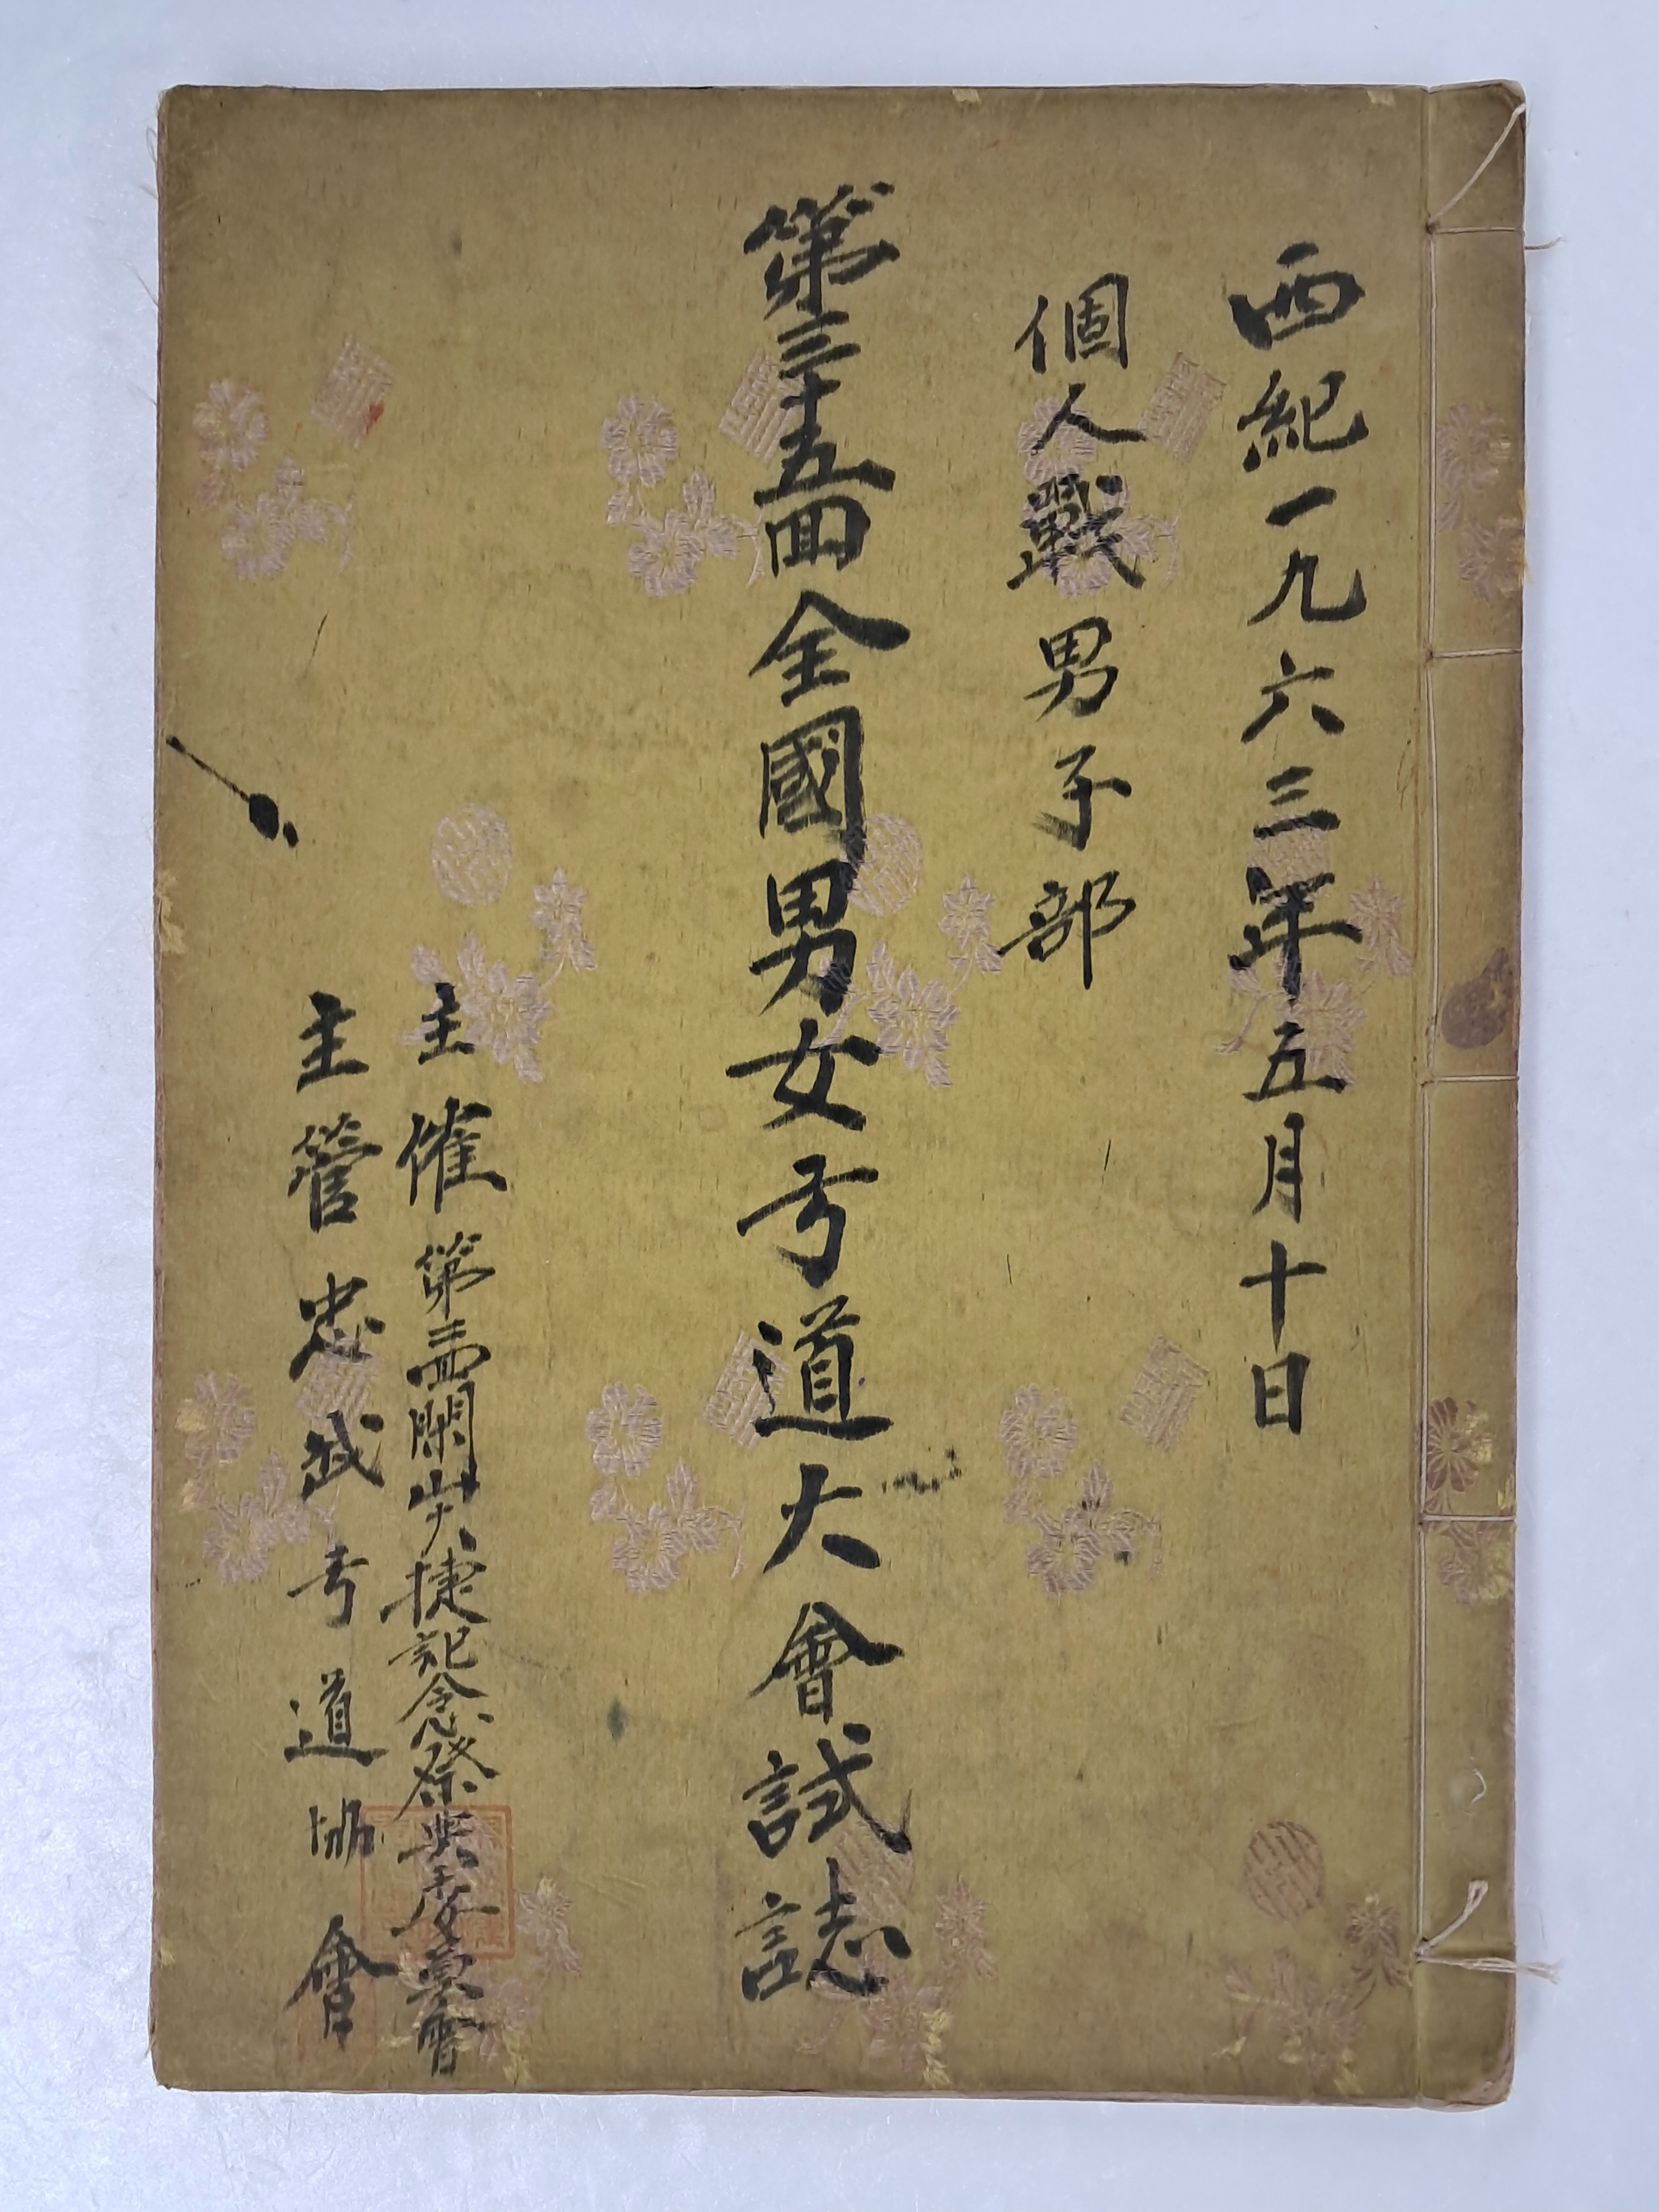 西紀一九六三年五月十日
個人戰男子部
第三十五回全國男女弓道大會試誌
主催 第三回閑山大捷記念祭典委員會
主管忠武弓道協會